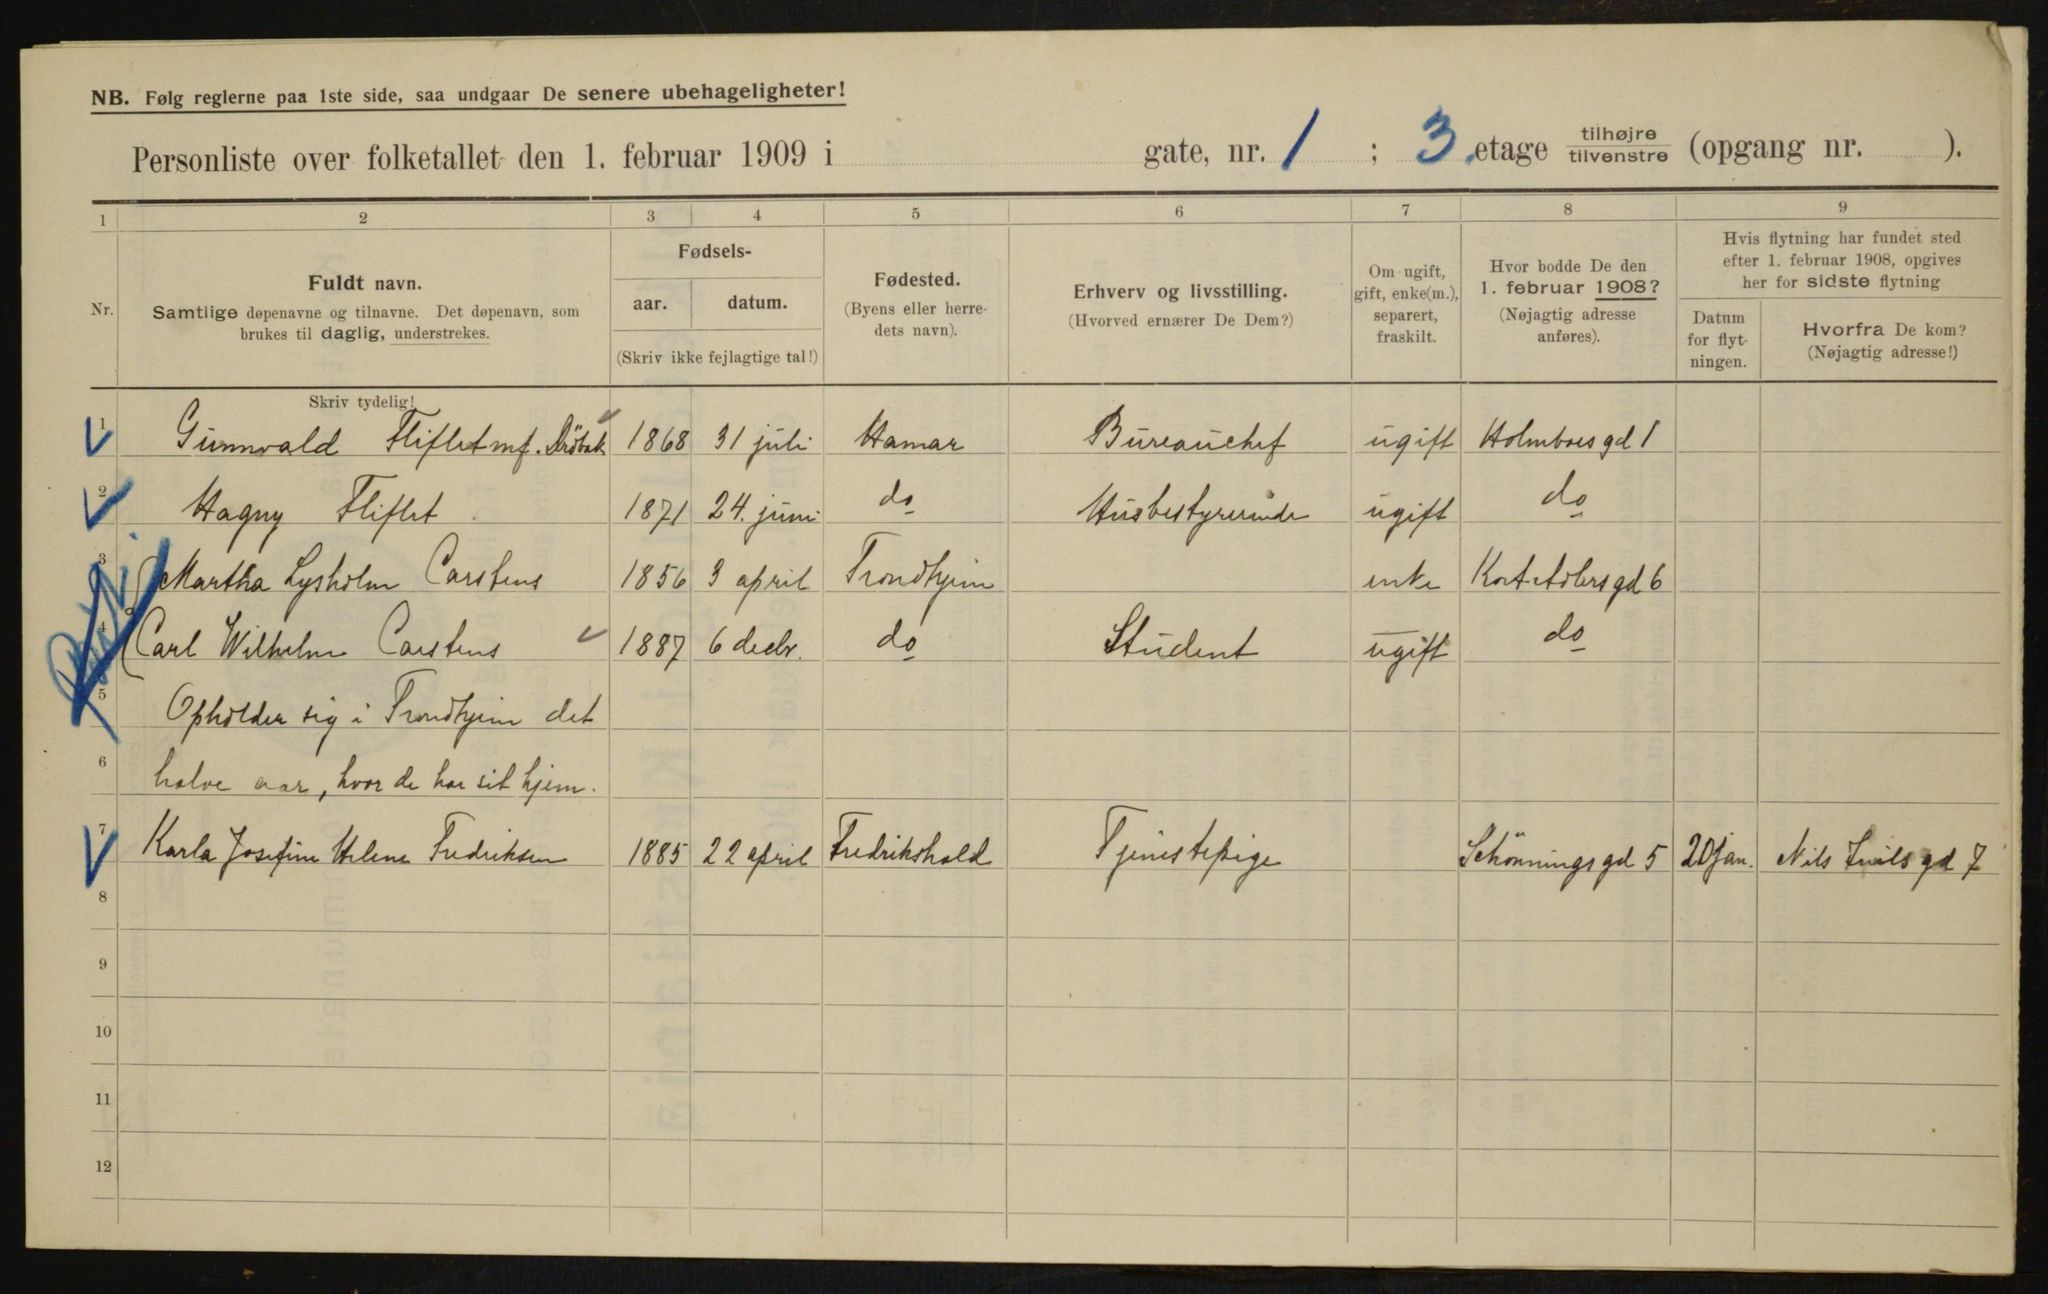 NB. Følg reglerne paa 1ste side, saa undgaar De senere ubehageligheter!
Personliste over folketallet den 1. februar 1909 i gate, nr. 1 ; 3. etage tilhøjre/tilvenstre (opgang nr. ).
1 2 3 4 5 6 7 8 9
Nr.
Fuldt navn.
Samtlige døpenavne og tilnavne. Det døpenavn, som
brukes til daglig, understrekes.
Fødsels-
aar. datum.
(Skriv ikke fejlagtige tal!)
Fødested.
(Byens eller herre-
dets navn).
Erhverv og livsstilling.
(Hvorved ernærer De Dem?)
Om ugift,
gift, enke(m.),
separert,
fraskilt.
Hvor bodde De den
1. februar 1908?
(Nøjagtig adresse
anføres).
Hvis flytning har fundet sted
efter 1. februar 1908, opgives
her for sidste flytning
Datum
for flyt-
ningen.
Hvorfra De kom?
(Nøjagtig adresse!)
Skriv tydelig!
1 Gunnvald Fliflet mf. Dröbak 1868 31 juli Hamar Bureauchef ugift Holmboes gd 1
2 Hagny Fliflet 1871 24. juni do Husbestyrerinde ugift do
3 Martha Lysholm Carstens 1856 3 april Trondhjem enke Kort Adlers gd 6
4 Carl Wilhelm Carstens 1887 6 decbr. do Student ugift do
5 Opholder sig i Trondhjem det
6 halve aar, hvor de har sit hjem.
7 Karla Josefine Helene Fredriksen 1885 22 april Fredrikshald Tjenestepige Schönnings gd 5 20 jan. Nils Juils gd 7
8
9
10
11
12